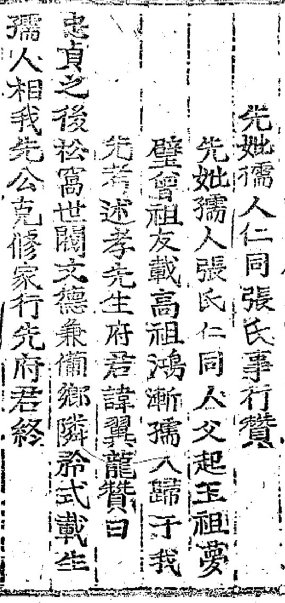 先妣孺人仁同張氏事行贊
先妣孺人張氏仁同人父起玉祖夢
璧曾祖友載高祖鴻漸孺人歸于我
先考述孝先生府君諱翼龍贊曰
忠貞之後松窩世閥文德兼備鄉隣矜式載生
孺人相我先公克修家行先府君終